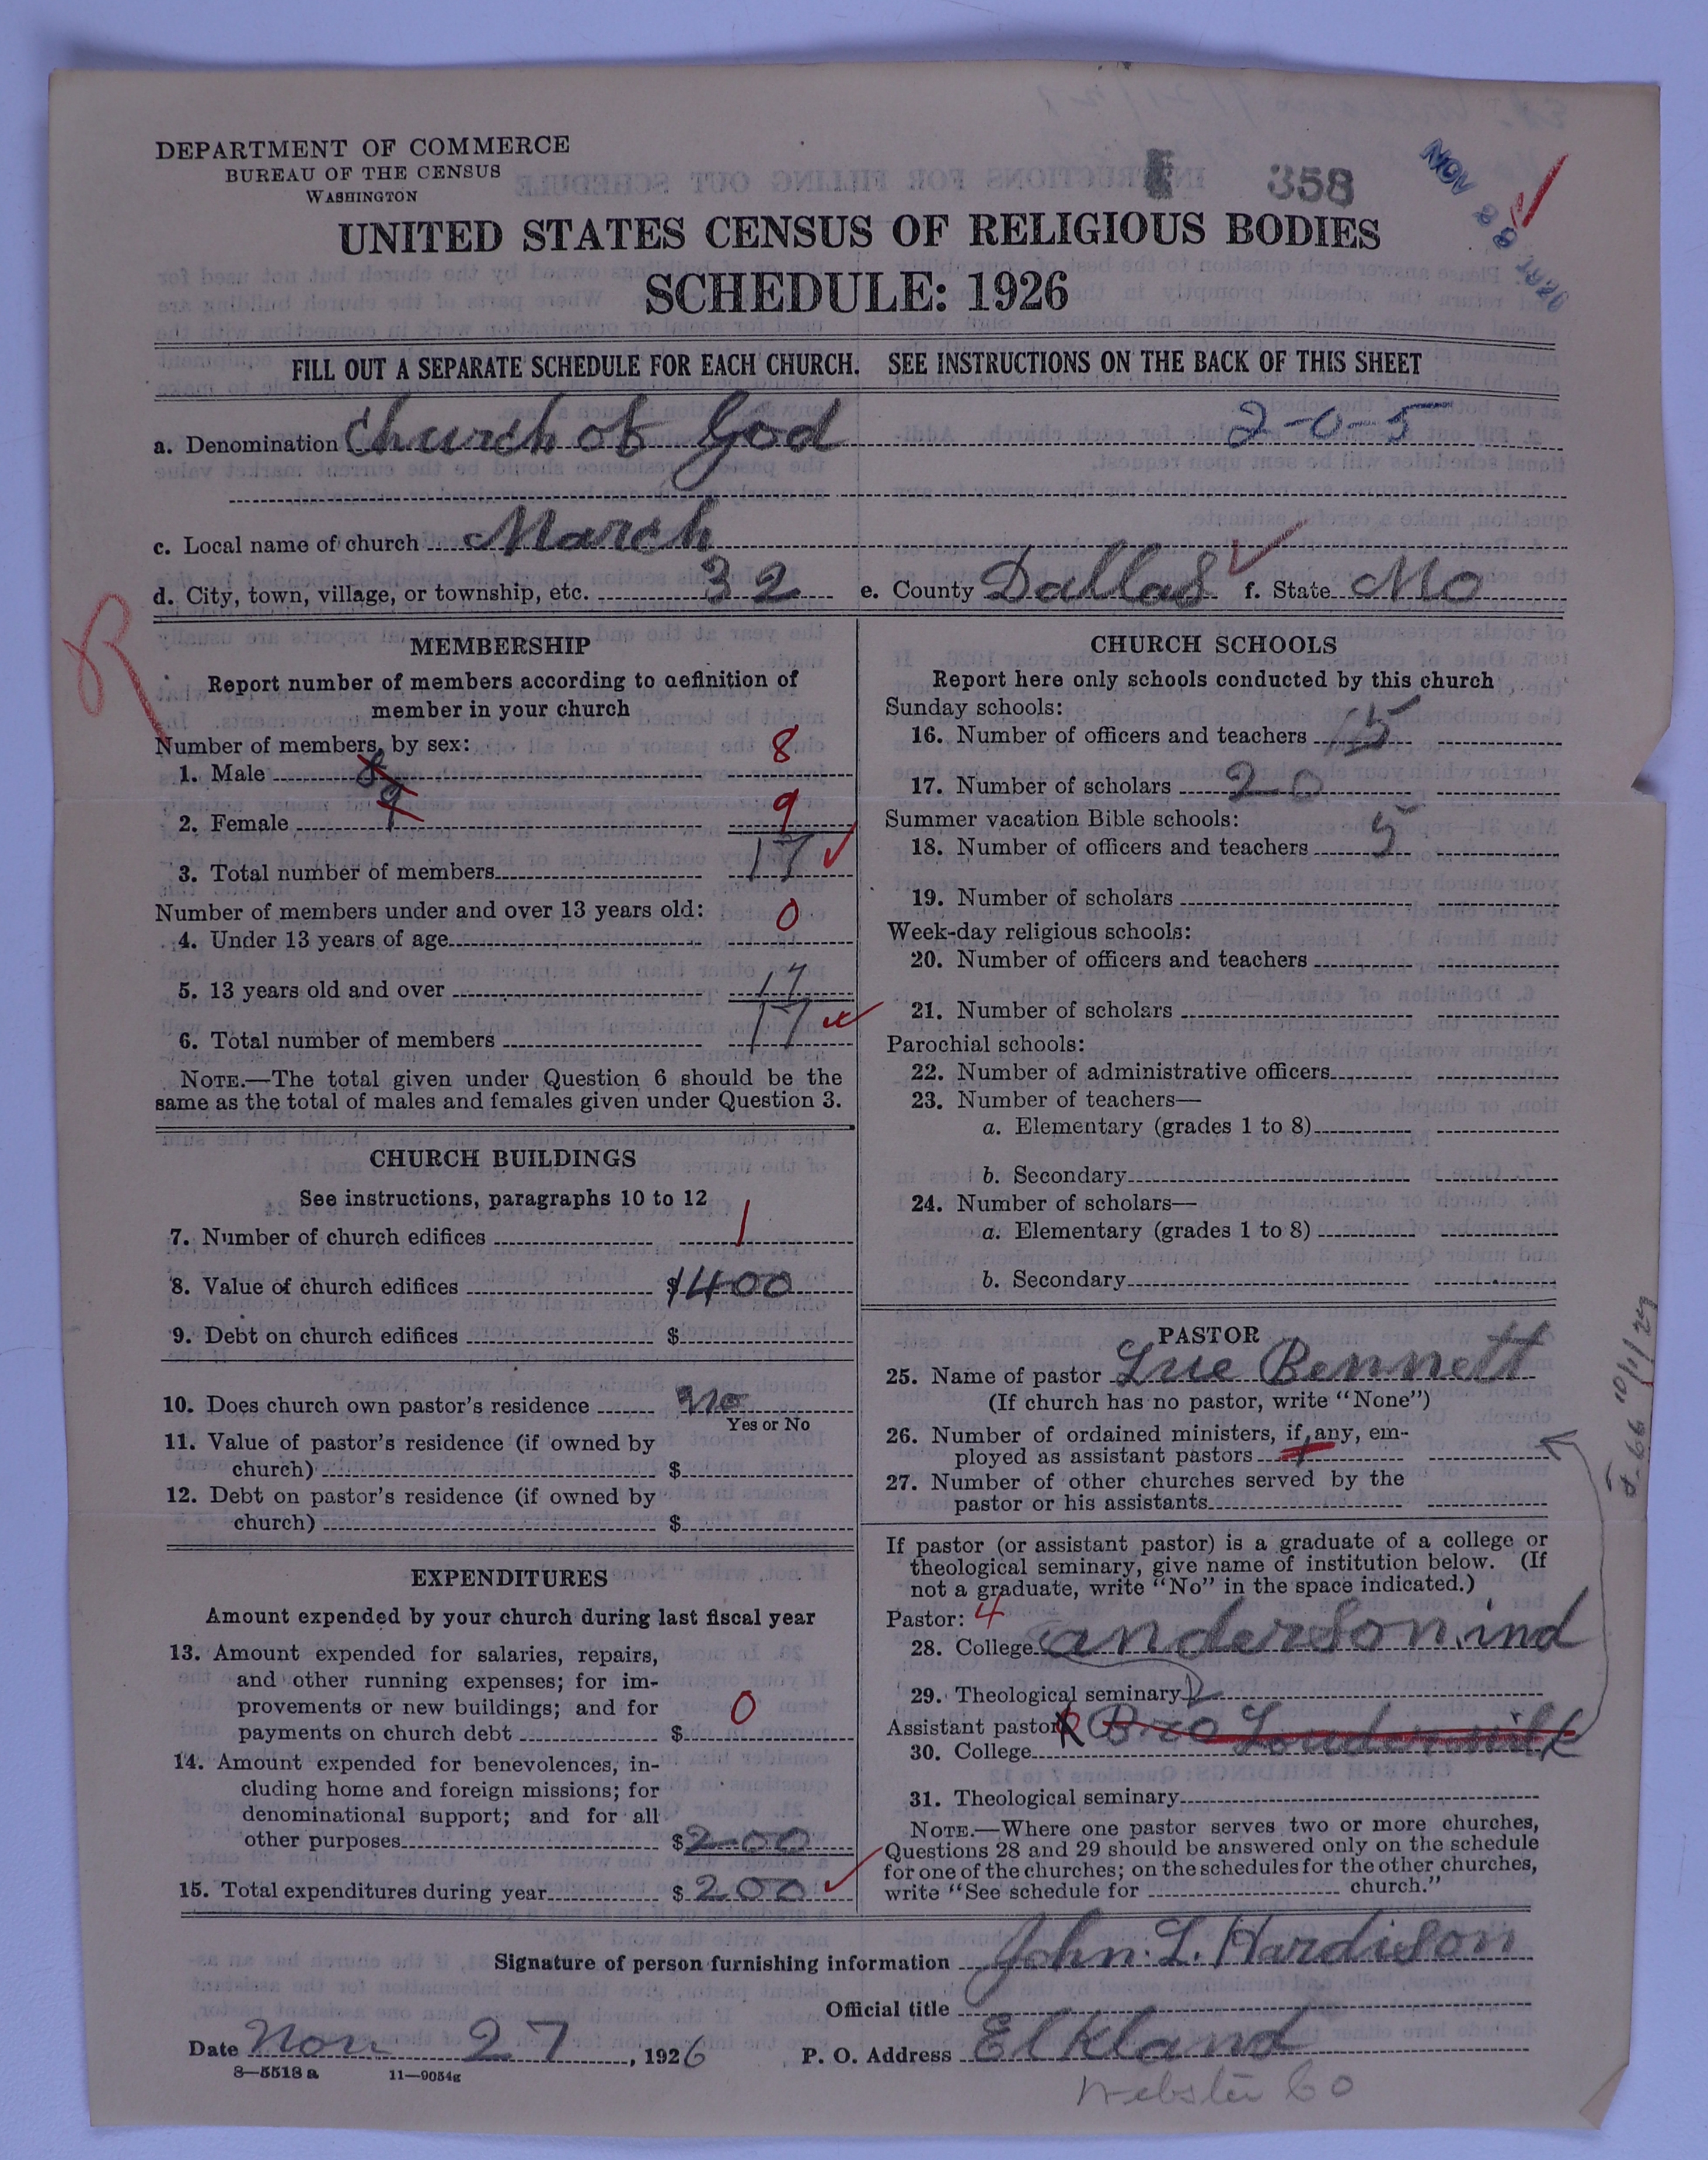 DEPARTMENT OF COMMERCE
BUREAU OF THE CENSUS
WASHINGTON
358
NOV 29 1927
UNITED STATES CENSUS OF RELIGIOUS BODIES
SCHEDULE: 1926
FILL OUT A SEPARATE SCHEDULE FOR EACH CHURCH. SEE INSTRUCTIONS ON THE BACK OF THIS SHEET
a. Denomination Church of God 2-0-5
c. Local name of church March
d. City, town, village, or township, etc. 32 e. County Dallas f. State Mo
R
MEMBERSHIP
Report number of members according to definition of
member in your church
Number of members, by sex:
1. Male 8 8
2. Female 9 9
3. Total number of members 17
Number of members under and over 13 years old:
4. Under 13 years of age 0
5. 13 years old and over 17
6. Total number of members 17
NOTE.—The total given under Question 6 should be the
same as the total of males and females given under Question 3.
CHURCH BUILDINGS
See instructions, paragraphs 10 to 12
7. Number of church edifices 1
8. Value of church edifices $1400
9. Debt on church edifices $
10. Does church own pastor's residence no
Yes or No
11. Value of pastor's residence (if owned by
church) $
12. Debt on pastor's residence (if owned by
church) $
EXPENDITURES
Amount expended by your church during last fiscal year
13. Amount expended for salaries, repairs,
and other running expenses; for im-
provements or new buildings; and for
payments on church debt $ 0
14. Amount expended for benevolences, in-
cluding home and foreign missions; for
denominational support; and for all
other purposes $200
15. Total expenditures during year $200
CHURCH SCHOOLS
Report here only schools conducted by this church
Sunday schools:
16. Number of officers and teachers 5
17. Number of scholars 20
Summer vacation Bible schools:
18. Number of officers and teachers 5
19. Number of scholars
Week-day religious schools:
20. Number of officers and teachers
21. Number of scholars
Parochial schools:
22. Number of administrative officers
23. Number of teachers—
a. Elementary (grades 1 to 8)
b. Secondary
24. Number of scholars—
a. Elementary (grades 1 to 8)
b. Secondary
PASTOR
25. Name of pastor Lue Bennett
(If church has no pastor, write "None")
26. Number of ordained ministers, if any, em-
ployed as assistant pastors
27. Number of other churches served by the
pastor or his assistants
If pastor (or assistant pastor) is a graduate of a college or
theological seminary, give name of institution below. (If
not a graduate, write "No" in the space indicated.)
Pastor: 4
28. College anderson ind
29. Theological seminary
Assistant pastor R Bro Loudermilk
30. College
31. Theological seminary
NOTE.—Where one pastor serves two or more churches,
Questions 28 and 29 should be answered only on the schedule
for one of the churches; on the schedules for the other churches,
write "See schedule for church."
Signature of person furnishing information John. L. Hardison
Official title
Date Nov 27, 1926 P. O. Address Elkland
8—5518 a 11—9054g
Webster Co